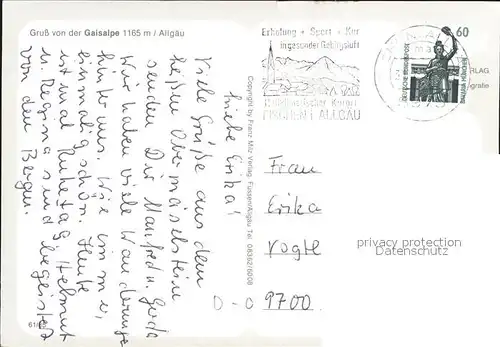 Gruß von der Gaisalpe 1165 m / Allgäu
Liebe Erika!
Viele Grüße aus dem
heißen Obermaiselstein
senden Dir Manfred u. Gerda
Wir haben viele Wanderungen
hinter uns. Wie immer,
einmalig schön. Heute
ist mal Ruhetag. Helmut
u. Regina sind begeistert
von den Bergen.
Copyright by Franz Milz Verlag, Füssen/Allgäu Tel. 08362/6008
Erholung • Sport • Kur
in gesunder Gebirgsluft
FISCHEN I. ALLGÄU
60
RLAG.
grafie
Frau
Erika
Vogtl
D-O 9700
privacy protection
Datenschutz